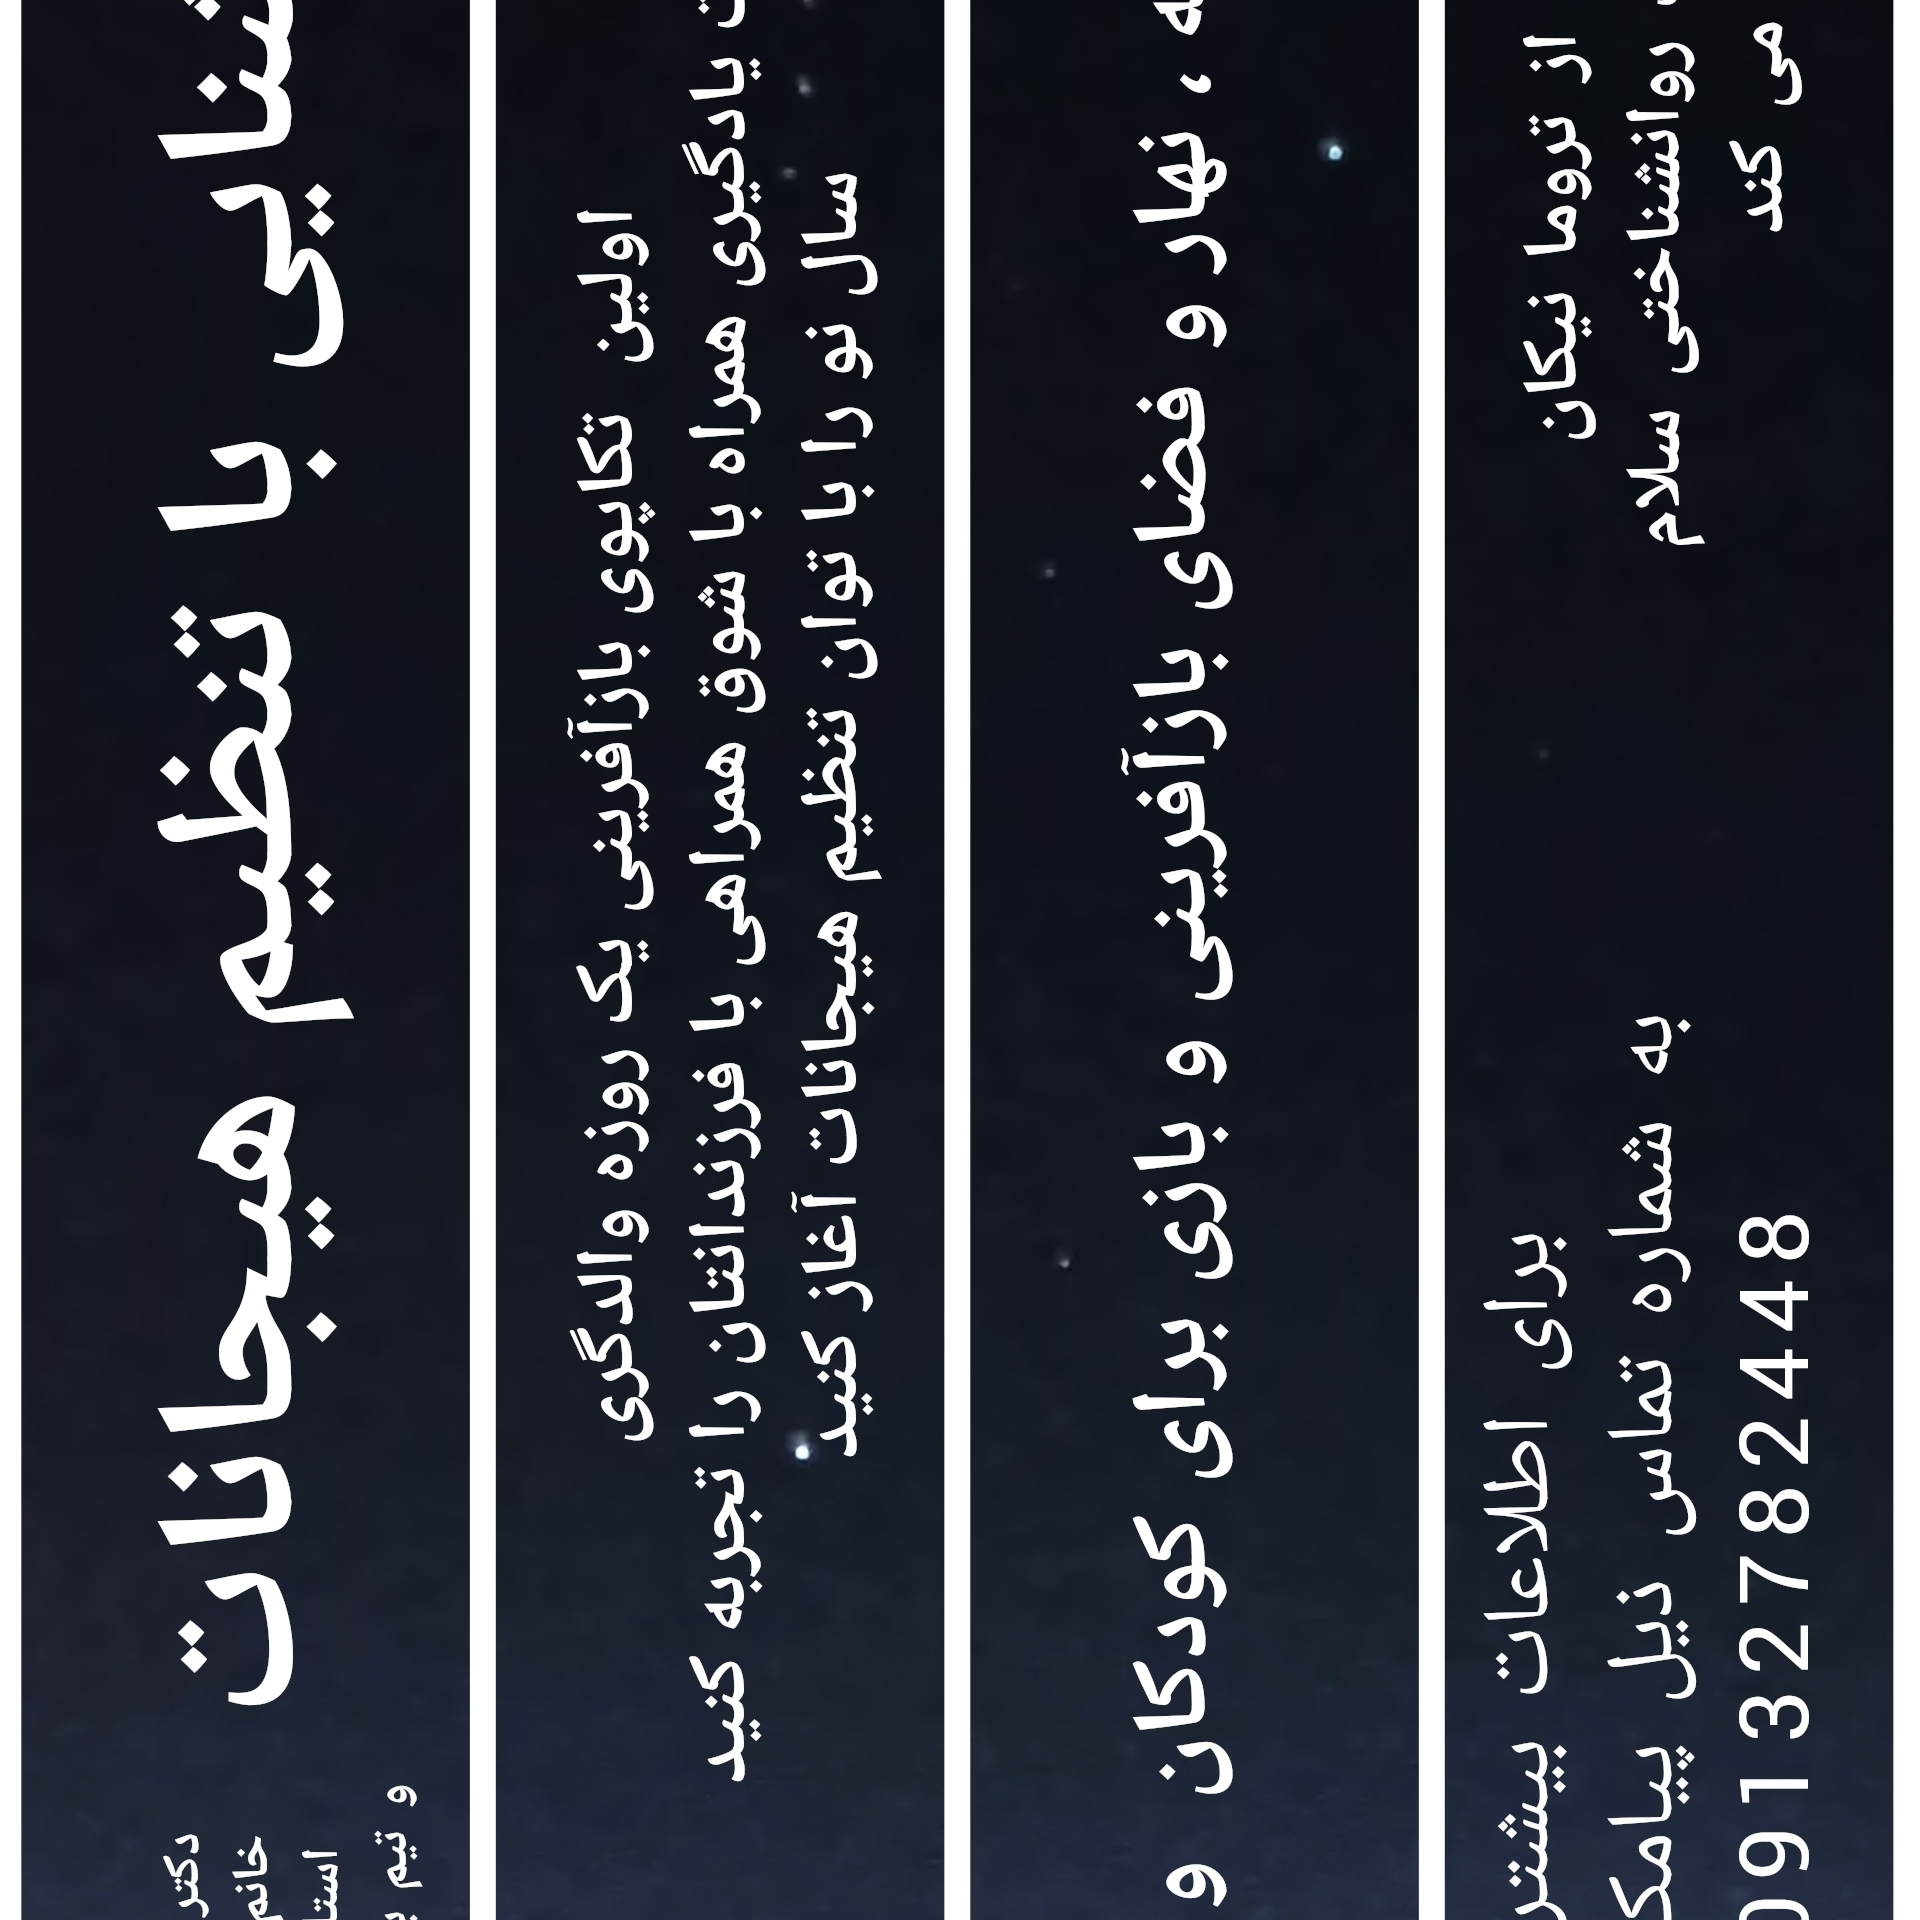 با تنظیم هیجانات
دکتر
خانم
و تیم
اولین تکاپوی بازآفرینی یک روزه والدگری
یادگیری همراه با شوق همراهی با فرزندانتان را تجربه کنید
سال نو را با توان تنظیم هیجانات آغاز کنید
، نهار و فضای بازآفرینی و بازی برای کودکان و
از تروما نیکان
روانشناختی سلام
می کند
برای اطلاعات بیشتر
به شماره تماس ذیل پیامک
09132782448